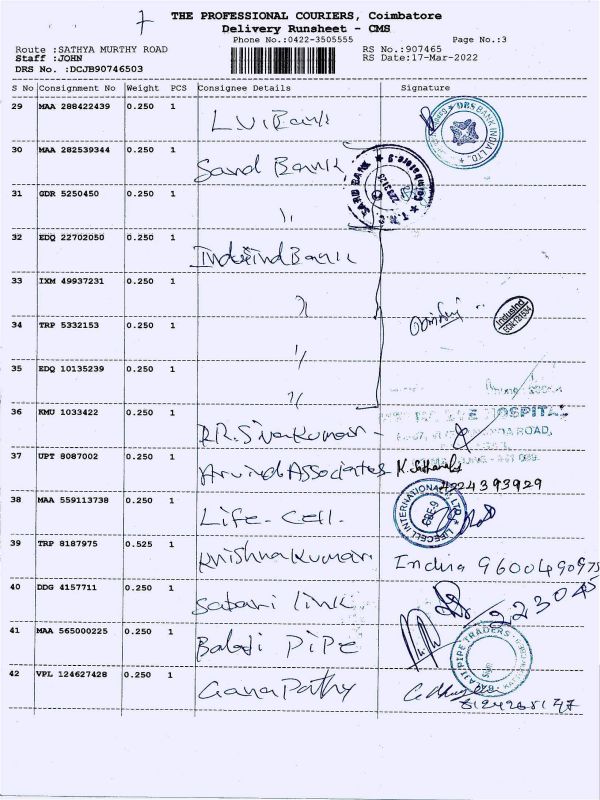 7
THE PROFESSIONAL COURIERS, Coimbatore
Delivery Runsheet - CMS
Phone No.:0422-3505555 Page No.:3
Route :SATHYA MURTHY ROAD RS No.:907465
Staff :JOHN RS Date:17-Mar-2022
DRS No. :DCJB90746503
S No Consignment No Weight PCS Consignee Details Signature
29 MAA 288422439 0.250 1 L V. Bank DBS BANK INDIA LTD.
30 MAA 282539344 0.250 1 Sand Bank
31 GDR 5250450 0.250 1 "
32 EDQ 22702050 0.250 1 Indusind Bank
33 IXM 49937231 0.250 1 " IndusInd
34 TRP 5332153 0.250 1 "
35 EDQ 10135239 0.250 1 "
36 KMU 1033422 0.250 1 R.R. Sivakumar - HOSPITAL
ROAD,
37 UPT 8087002 0.250 1 Arvind Associates
4224393929
38 MAA 559113738 0.250 1 Life-Cell. LIFECELL INTERNATIONAL LTD.
39 TRP 8187975 0.525 1 Krishnakumar. Indira 9600490975
40 DDG 4157711 0.250 1 Sabari link 223045
41 MAA 565000225 0.250 1 Balaji PiPE PIPE TRADERS
42 VPL 124627428 0.250 1 GanaPathy